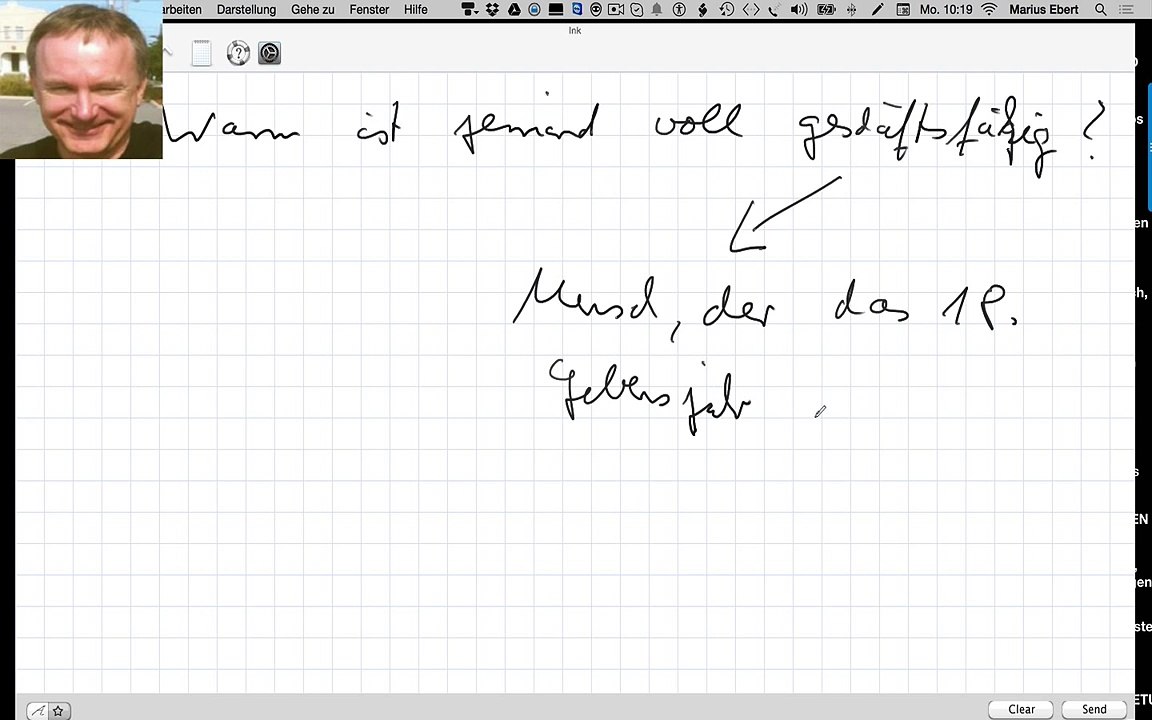 arbeiten Darstellung Gehe zu Fenster Hilfe Mo. 10:19 Marius Ebert
Ink
Wann ist jemand voll geschäftsfähig?
Mensch, der das 18.
Lebensjahr
Clear Send
os
en
h,
s
EN
en
ste
ETU